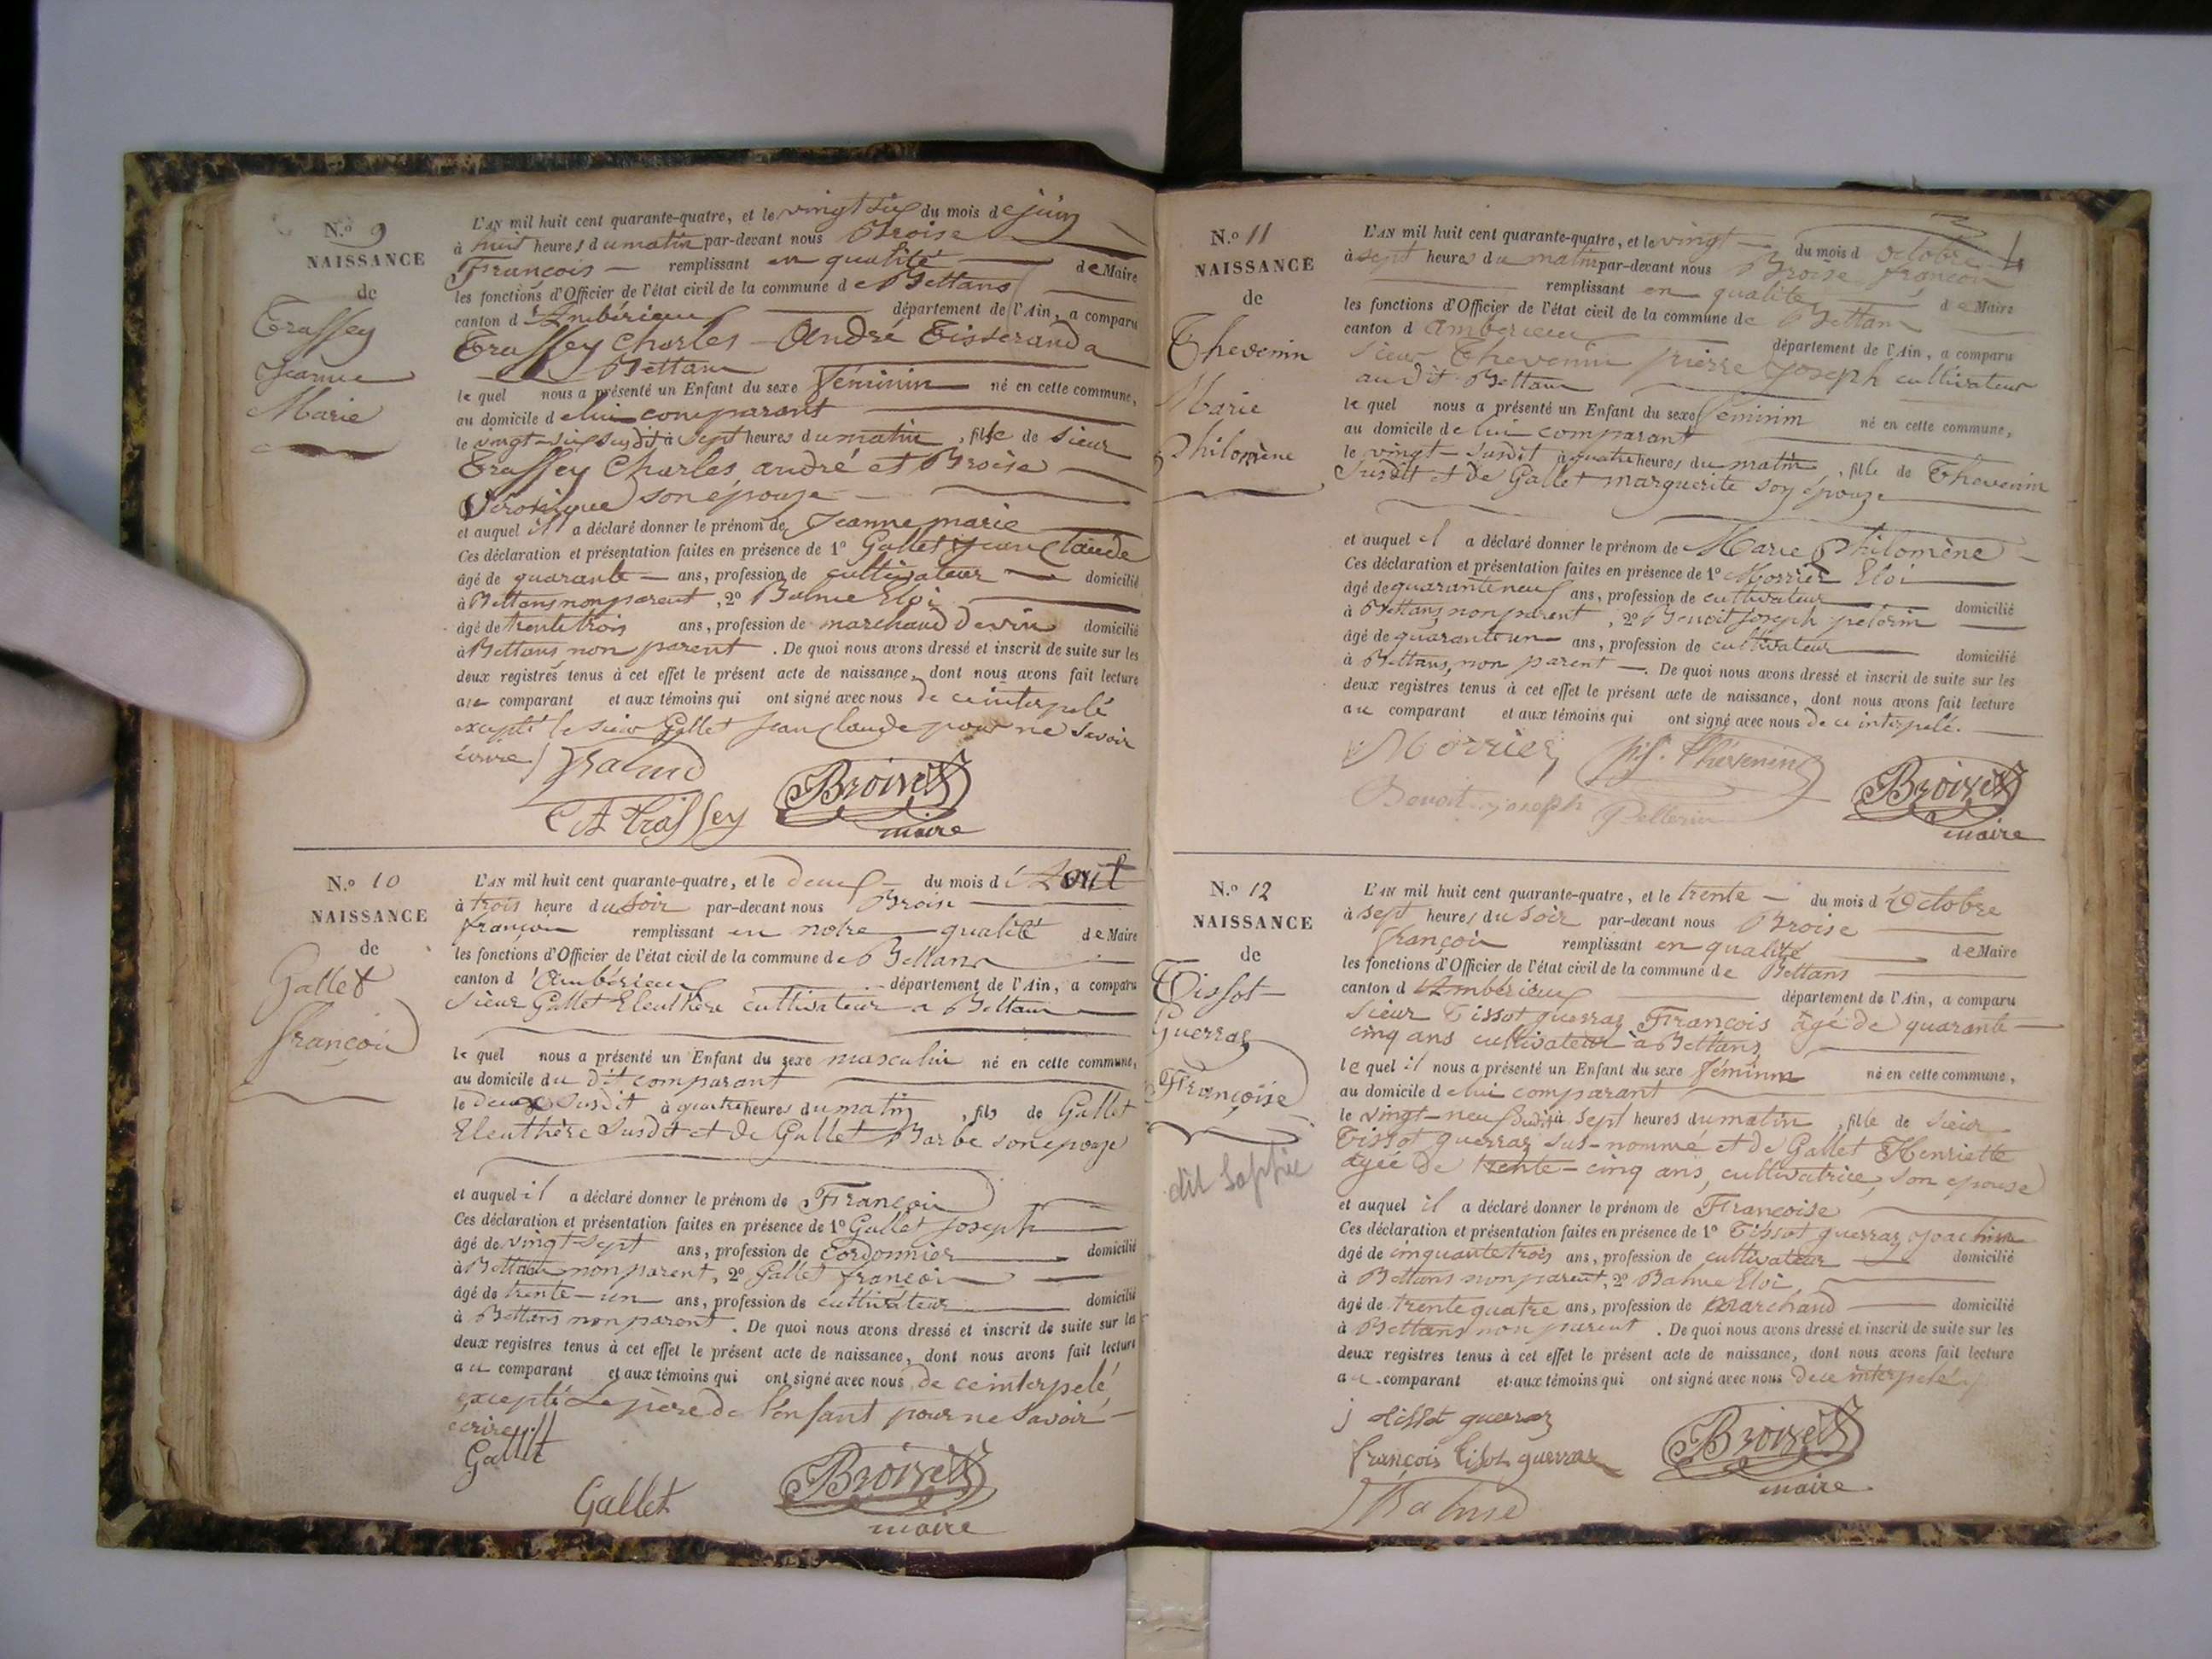 N.º 9
NAISSANCE
de
Trassey
Jeanne
Marie
L'AN mil huit cent quarante-quatre, et le vingt six du mois de juin
à huit heures du matin par-devant nous Broise
François remplissant en qualité de Maire
les fonctions d'Officier de l'état civil de la commune de Bettans
canton d'Ambérieux département de l'Ain, a comparu
Trassey Charles André Tisserand a
Bettans
lequel nous a présenté un Enfant du sexe féminin né en cette commune,
au domicile de lui comparant
le vingt-six susdit à sept heures du matin, fille de sieur
Trassey Charles andré et Broise
Véronique son épouse
et auquel il a déclaré donner le prénom de Jeanne marie
Ces déclaration et présentation faites en présence de 1º Gallet jean Claude
âgé de quarante ans, profession de cultivateur domicilié
à Bettans non parent, 2º Balme Eloi
âgé de trente trois ans, profession de marchand de vin domicilié
à Bettans non parent. De quoi nous avons dressé et inscrit de suite sur les
deux registres tenus à cet effet le présent acte de naissance, dont nous avons fait lecture
au comparant et aux témoins qui ont signé avec nous de ce interpelé
excepté le sieur Gallet Jean Claude pour ne Savoir
écrire
Balme
C A trassey
Broise
maire
N.º 10
NAISSANCE
de
Gallet
françois
L'AN mil huit cent quarante-quatre, et le deux du mois d'Aout
à trois heure du soir par-devant nous Broise
françois remplissant en notre qualité de Maire
les fonctions d'Officier de l'état civil de la commune de Bettans
canton d'Ambérieux département de l'Ain, a comparu
Sieur Gallet Eleuthère cultivateur a Bettans
lequel nous a présenté un Enfant du sexe masculin né en cette commune,
au domicile du dit comparant
le deux susdit à quatre heures du matin, fils de Gallet
Eleuthère Susdit et de Gallet Barbe son epouse
et auquel il a déclaré donner le prénom de François
Ces déclaration et présentation faites en présence de 1º Gallet joseph
âgé de vingt-sept ans, profession de Cordonnier domicilié
à Bettans non parent, 2º Gallet françois
âgé de trente-un ans, profession de cultivateur domicilié
à Bettans non parent. De quoi nous avons dressé et inscrit de suite sur les
deux registres tenus à cet effet le présent acte de naissance, dont nous avons fait lecture
au comparant et aux témoins qui ont signé avec nous de ce interpelé
excepté Le père de l'enfant pour ne Savoir
ecrire
Gallet
Gallet
Broise
maire
N.º 11
NAISSANCE
de
Thevenin
Marie
Philomène
L'AN mil huit cent quarante-quatre, et le vingt du mois d octobre
à sept heures du matin par-devant nous Broise françois
remplissant en qualité de Maire
les fonctions d'Officier de l'état civil de la commune de Bettans
canton d'amberieu département de l'Ain, a comparu
sieur Thevenin pierre joseph cultivateur
au dit Bettans
lequel nous a présenté un Enfant du sexe féminin né en cette commune,
au domicile de lui comparant
le vingt susdit à quatre heures du matin, fille de Thevenin
Susdit et de Gallet marguerite son épouse
et auquel il a déclaré donner le prénom de Marie Philomène
Ces déclaration et présentation faites en présence de 1º Morrier Eloi
âgé de quarante neuf ans, profession de cultivateur domicilié
à Bettans, non parent, 2º Benoit joseph pelerin
âgé de quarante un ans, profession de cultivateur domicilié
à Bettans, non parent. De quoi nous avons dressé et inscrit de suite sur les
deux registres tenus à cet effet le présent acte de naissance, dont nous avons fait lecture
au comparant et aux témoins qui ont signé avec nous de ce interpelé.
Morrier
Thévenin
Benoit joseph Pellerin
Broise
maire
N.º 12
NAISSANCE
de
Tissot
Guerraz
Françoise
dit Sophie
L'AN mil huit cent quarante-quatre, et le trente du mois d'Octobre
à sept heures du soir par-devant nous Broise
françois remplissant en qualité de Maire
les fonctions d'Officier de l'état civil de la commune de Bettans
canton d'Ambérieux département de l'Ain, a comparu
Sieur Tissot guerraz François âgé de quarante
cinq ans cultivateur à Bettans
lequel il nous a présenté un Enfant du sexe féminin né en cette commune,
au domicile de lui comparant
le vingt-neuf susdit à sept heures du matin, fille de sieur
Tissot guerraz sus-nommé et de Gallet Henriette
agée de trente-cinq ans, cultivatrice, son epouse
et auquel il a déclaré donner le prénom de Francoise
Ces déclaration et présentation faites en présence de 1º Tissot guerraz joachim
âgé de cinquante trois ans, profession de cultivateur domicilié
à Bettans non parent, 2º Balme Eloi
âgé de trente quatre ans, profession de Marchand domicilié
à Bettans non parent. De quoi nous avons dressé et inscrit de suite sur les
deux registres tenus à cet effet le présent acte de naissance, dont nous avons fait lecture
au comparant et aux témoins qui ont signé avec nous de ce interpelé
j tissot guerraz
françois tisot guerraz
Balme
Broise
maire